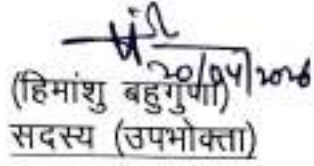 20/04/2026
(हिमांशु बहुगुणा)
सदस्य (उपभोक्ता)